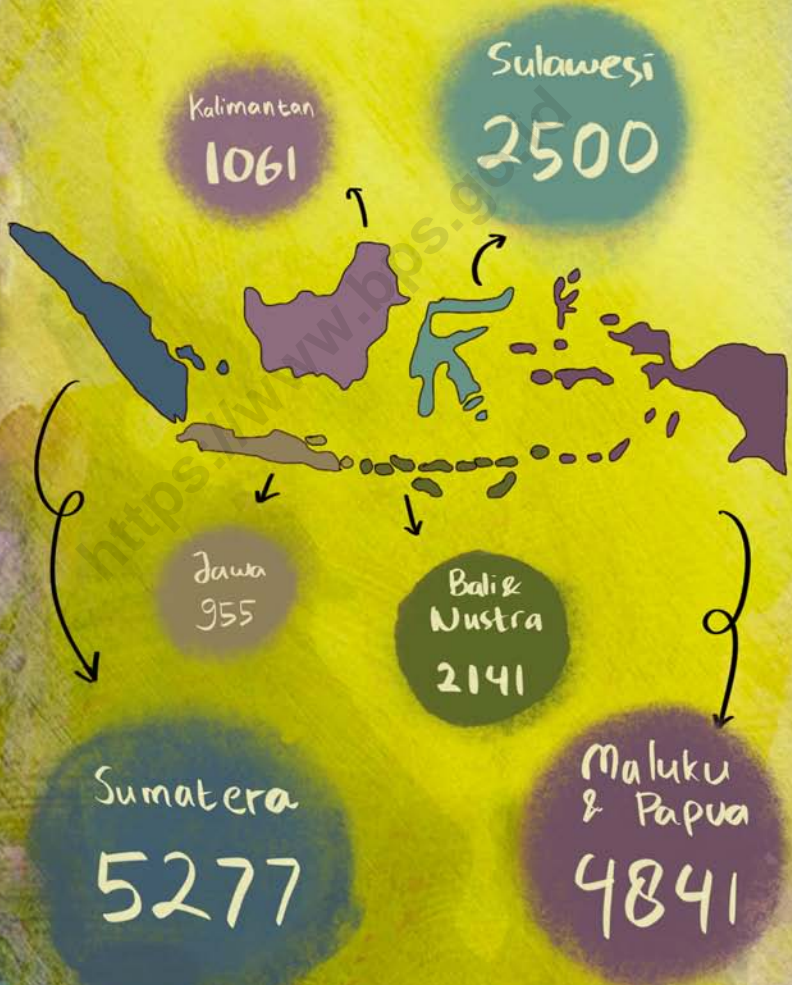 Kalimantan
1061
Sulawesi
2500
https://www.bps.go.id
Jawa
955
Bali &
Nustra
2141
Sumatera
5277
Maluku
& Papua
4841